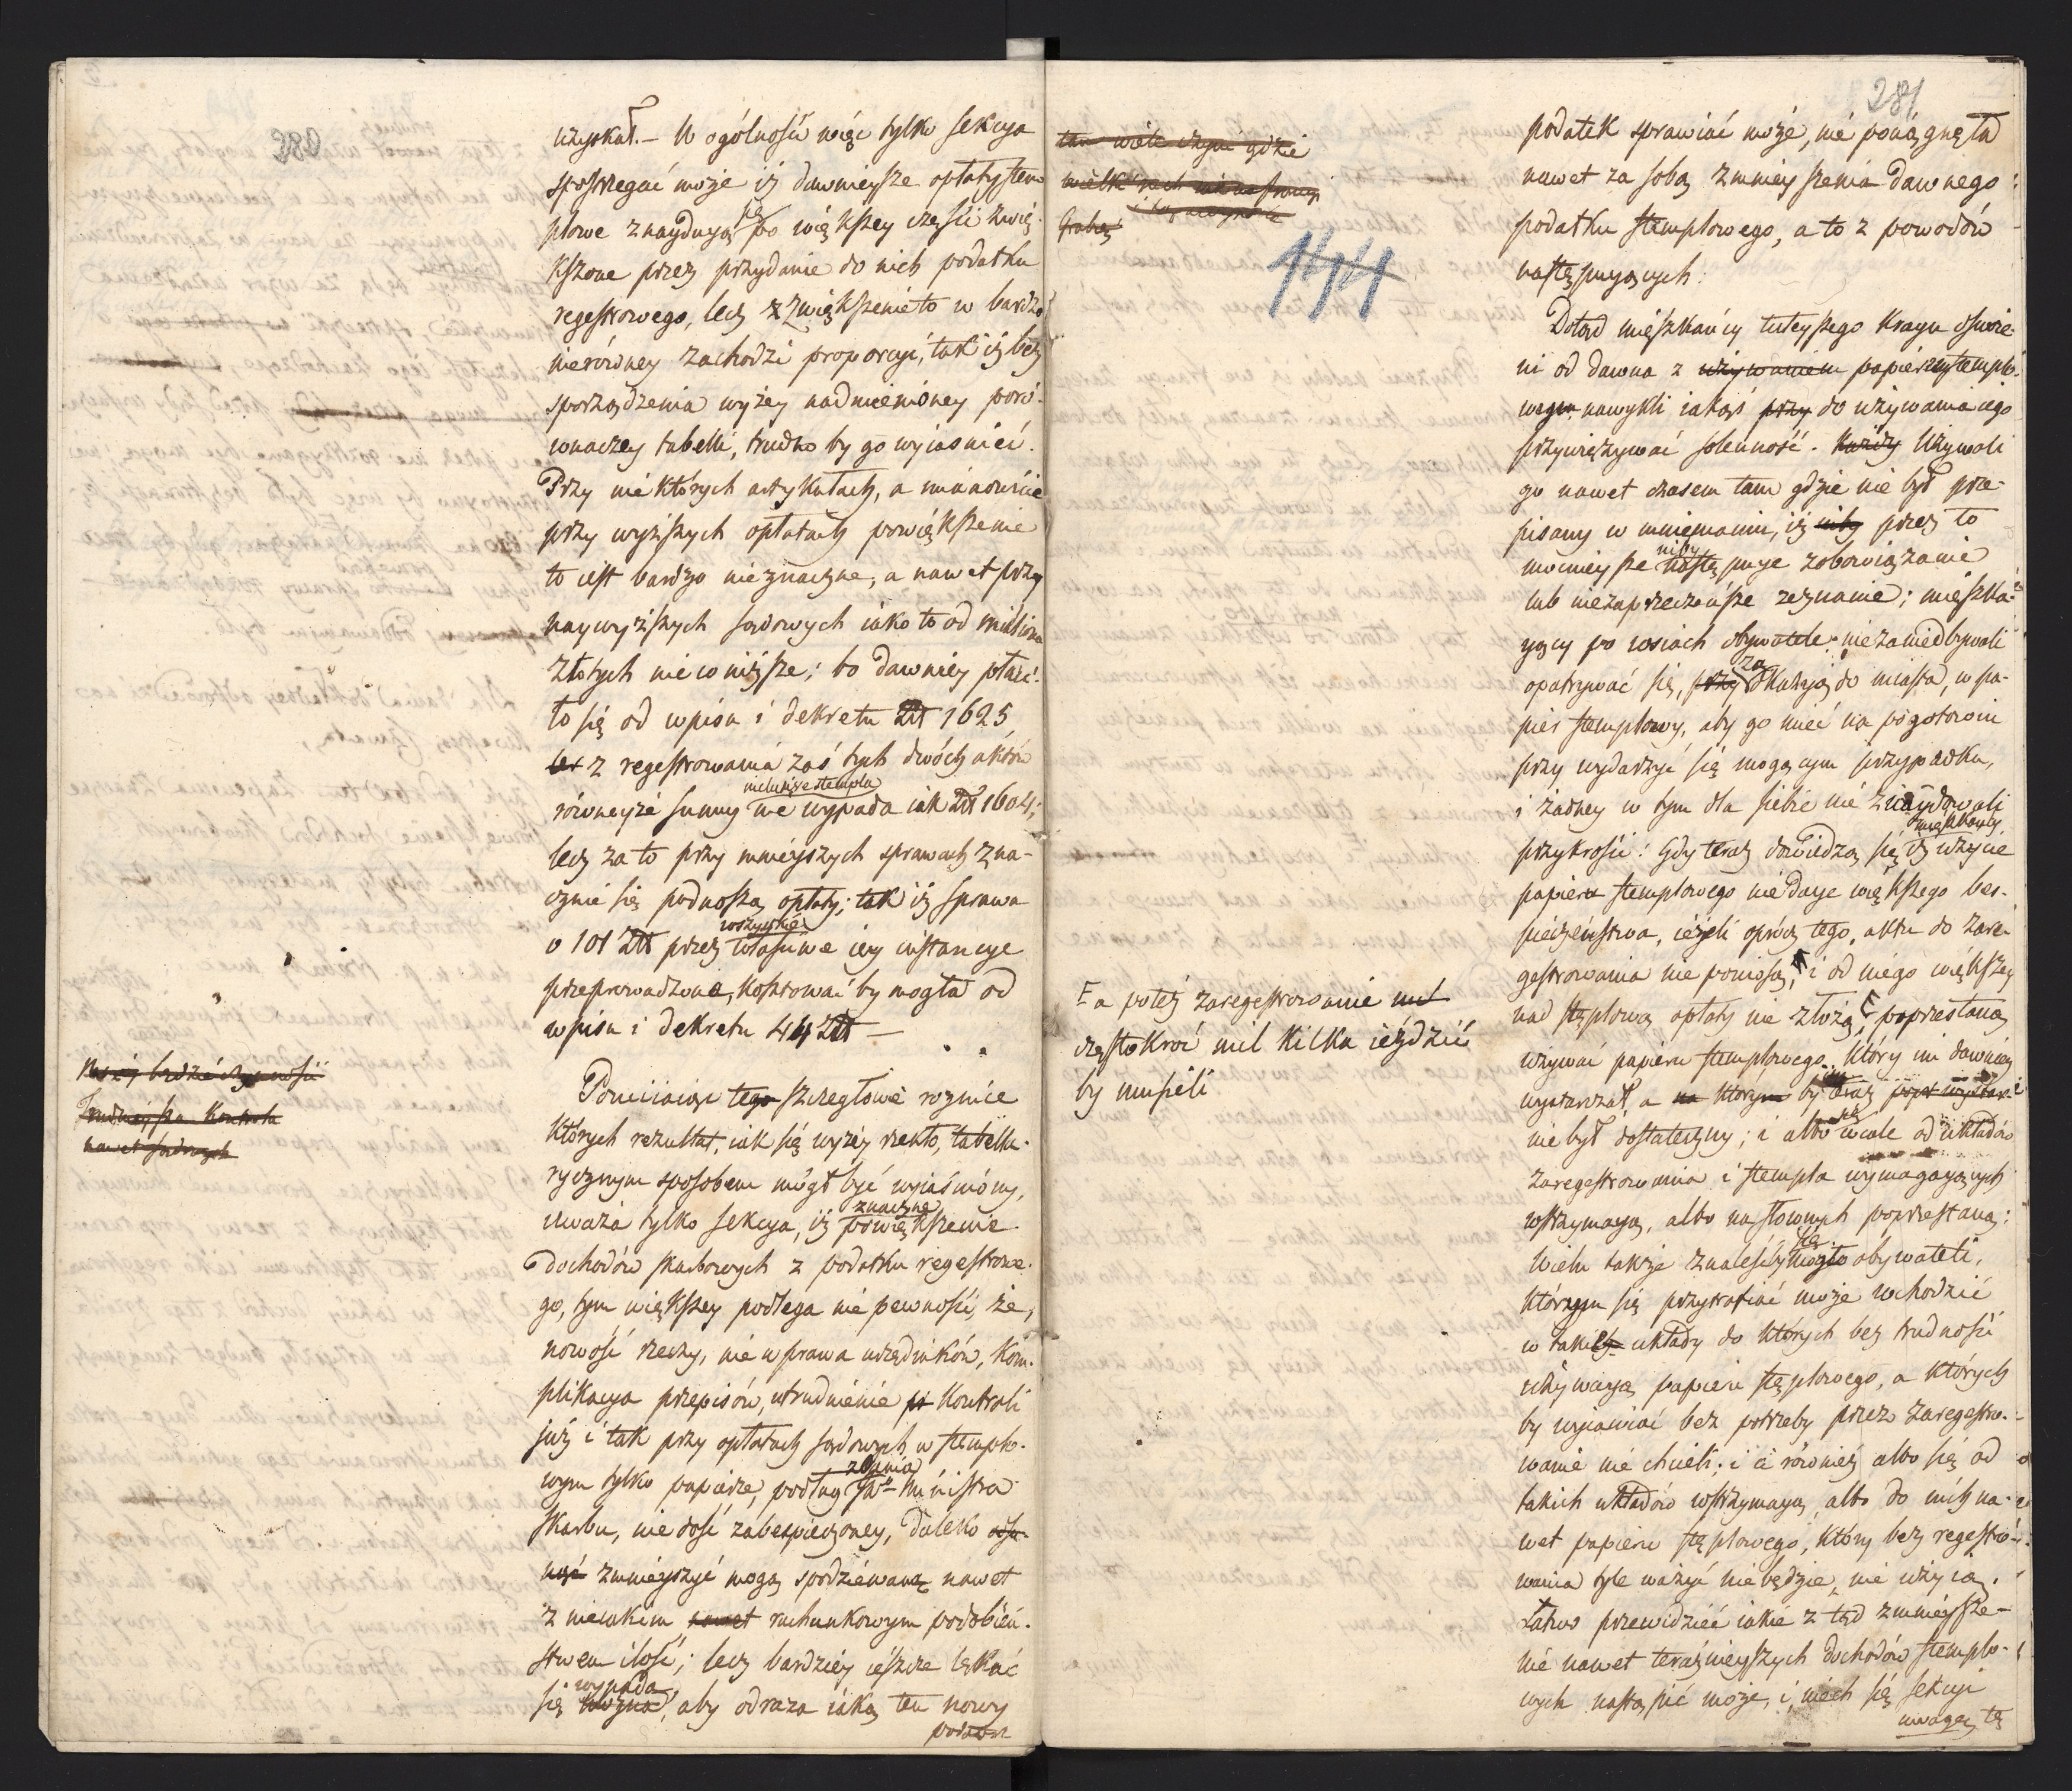 280
uzyskał. – W ogólności więc tylko Sekcya
spostrzegać może iż dawnieysze opłaty stem
plowe znayduyą się po większey części zwię-
kszone przez przydanie do nich podatku
regestrowego, lecz zwiększenie to w bardzo
nierówney zachodzi proporcyi, tak iż bez
sporządzenia wyżey nadmienioney poró-
wnaczey tabelli, trudno by go wyiaśnieć.
Przy niektórych artykułach, a mianowicie
przy wyższych opłatach powiększenie
to iest bardzo nieznaczne, a nawet przy
naywyższych sądowych iako to od miliona
złotych nieco niższe; bo dawniey płaci-
ło się od wpisu i dekretu Złł 1625
z regestrowania zaś tych dwóch aktów
wielkiższe stempla
równeyże summy nie wypada iak Złł 1604;
lecz za to przy mnieyszych sprawach zna-
cznie się podnoszą opłaty; tak iż sprawa
wszystkie
o 101 Złł przez właściwe iey instancye
przeprowadzona, kosztować by mogła od
wpisu i dekretu 44 Złł –
Pomiiaiąc tego szczegłowe roznice
których rezultat, iak się wyżey rzekło, tabella-
rycznym sposobem mógł być wyiaśniony,
znaczne
uważa tylko Sekcya, iż powiększenie
dochodów skarbowych z podatku regestrowe-
go, tym większey podlega nie pewności, że,
nowość rzeczy, nie wprawa urzędników, kom-
plikacya przepisów, utrudnienie kontroli
już i tak przy opłatach sądowych w stemplo-
wym tylko papierze, podług zdania JW Ministra
Skarbu, nie dość zabespieczoney, daleko
zmnieyszyć mogą spodziewaną nawet
z nieiakim nawet rachunkowym podobień-
stwem ilość; lecz bardziey ieszcze lękać
wypada
się można, aby odraza iaką ten nowy
podatek
trudnieysza kontrola
nawet sądowych
281
tam wiele czyni gdzie
144
podatek sprawiać może, nie pociągnęła
nawet za sobą zmnieyszenia dawnego
podatku stemplowego, a to z powodów
następuyących:
Dotąd mieszkańcy tuteyszego kraju oswoie-
ni od dawna z używaniem papieru stemplo-
wego, nawykli iakąś przy do używania iego
przywięzywać solenność. Każdy Używali
go nawet czasem tam gdzie nie był prze-
pisany w mniemaniu, iż niby przez to
niby
mocnieysze następuje zobowiązanie
lub niezaprzeczeńsze zeznanie; mieszka-
yący po wsiach obywatele niezaniedbywali
opatrywać się, przy za okazyą do miasta, w pa-
pier stemplowy, aby go mieć na pogotowiu
przy wydarzyć się mogącym przypadku,
i żadney w tym dla siebie nie znaydowali
mieszkańcy
przykrości: Gdy teraz dowiedzą się iż użycie
papieru stemplowego nie daie większego bes-
pieczeństwa, ieżeli oprócz tego, aktu do zare-
gestrowania nie poniosą, i od niego większey
nad stęplową opłaty nie złożą, poprzestaną
używać papieru stemplowego, który im dawniey
wystarczał, a na którym by teraz
nie był dostateczny; i albo się wcale od układów
zaregestrowania i stempla wymagaiących
wstrzymaią, albo na słownych poprzestaną:
Wielu także znaleśćby się mogło obywateli,
którzym się przytrafiać może wchodzić
w takie układy do których bez trudności
używaią papieru stęplowego, a których
by wyiawiać bez potrzeby przez zaregestro-
wanie nie chcieli; i ci również albo się od
takich układów wstrzymaią albo do nich na-
wet papieru stęplowego, który bez regestro-
wania tyle ważyć nie będzie, nie użyią.
Łatwo przewidzieć iakie z tąd zmnieysze-
nie nawet teraźnieyszych dochodów stemplo-
wych nastąpić może, i niech się Sekcyi
uwagę tę
Γ a potéż zaregestrowanie mil
częstokroć mil kilka ieździć
by musieli